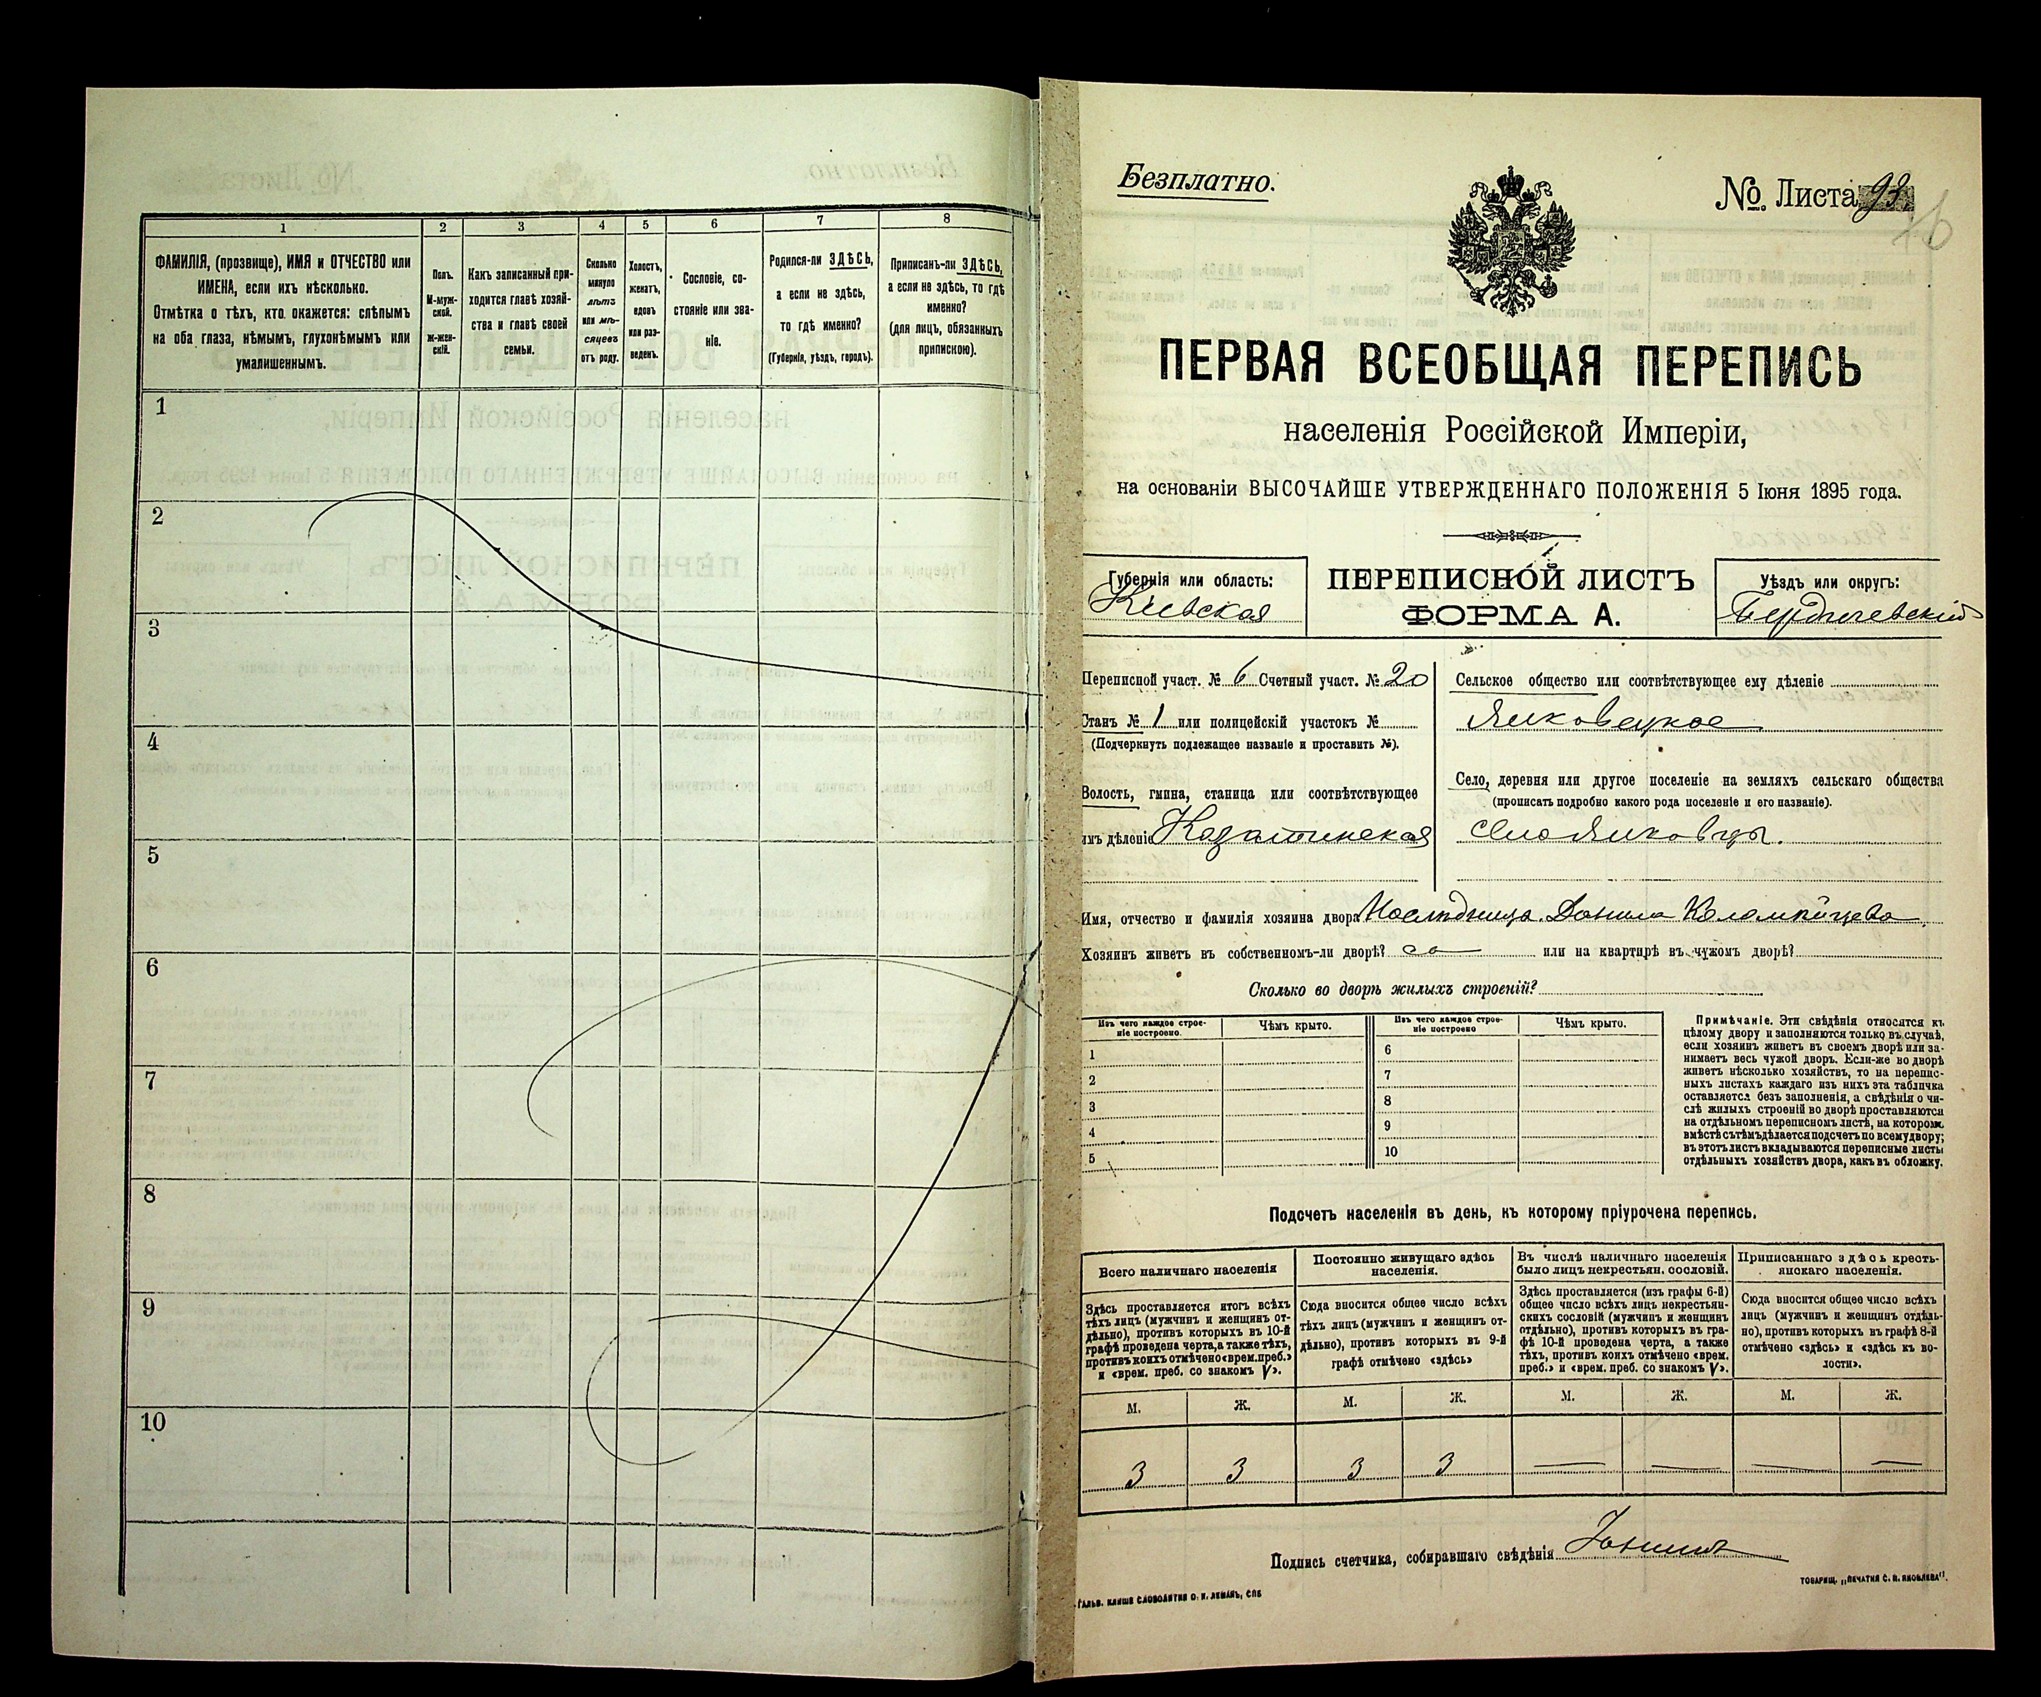 1
2
3
4
5
6
7
8
ФАМИЛІЯ, (прозвище), ИМЯ и ОТЧЕСТВО или
ИМЕНА, если ихъ нѣсколько.
Отмѣтка о тѣхъ, кто окажется: слѣпымъ
на оба глаза, нѣмымъ, глухонѣмымъ или
умалишеннымъ.
Полъ.
М-муж-
ской.
ж-жен-
скій.
Какъ записанный при-
ходится главѣ хозяй-
ства и главѣ своей
семьи.
Сколько
минуло
лѣтъ
или мѣ-
сяцевъ
отъ роду.
Холостъ,
женатъ,
вдовъ
или раз-
веденъ.
Сословіе, со-
стояніе или зва-
ніе.
Родился-ли ЗДѢСЬ,
а если не здѣсь,
то гдѣ именно?
(Губернія, уѣздъ, городъ).
Приписанъ-ли ЗДѢСЬ,
а если не здѣсь, то гдѣ
именно?
(для лицъ, обязанныхъ
припискою).
1
2
3
4
5
6
7
8
9
10
Безплатно.
№ Листа 93.
16
ПЕРВАЯ ВСЕОБЩАЯ ПЕРЕПИСЬ
населенія Россійской Имперіи,
на основаніи ВЫСОЧАЙШЕ УТВЕРЖДЕННАГО ПОЛОЖЕНІЯ 5 Іюня 1895 года.
Губернія или область:
Кіевская
ПЕРЕПИСНОЙ ЛИСТЪ
ФОРМА А.
Уѣздъ или округъ:
Бердичевскій
Переписной участ. № 6 Счетный участ. № 20
Станъ № 1 или полицейскій участокъ №
(Подчеркнуть подлежащее названіе и проставить №).
Волость, гмина, станица или соотвѣтствующее
имъ дѣленіе Казатинская
Сельское общество или соотвѣтствующее ему дѣленіе
Янковецкое
Село, деревня или другое поселеніе на земляхъ сельскаго общества
(прописать подробно какого рода поселеніе и его названіе).
село Янковцы.
Имя, отчество и фамилія хозяина двора Наслѣдница Данила
Хозяинъ живетъ въ собственномъ-ли дворѣ? или на квартирѣ въ чужомъ дворѣ?
Сколько во дворѣ жилыхъ строеній?
Изъ чего каждое строе-
ніе построено.
Чѣмъ крыто.
Изъ чего каждое строе-
ніе построено
Чѣмъ крыто.
1
2
3
4
5
6
7
8
9
10
Примѣчаніе. Эти свѣдѣнія относятся къ
цѣлому двору и заполняются только въ случаѣ,
если хозяинъ живетъ въ своемъ дворѣ или за-
нимаетъ весь чужой дворъ. Если-же во дворѣ
живетъ нѣсколько хозяйствъ, то на перепис-
ныхъ листахъ каждаго изъ нихъ эта табличка
оставляется безъ заполненія, а свѣдѣнія о чи-
слѣ жилыхъ строеній во дворѣ проставляются
на отдѣльномъ переписномъ листѣ, на которомъ
вмѣстѣ съ тѣмъ дѣлается подсчетъ по всему двору;
въ этотъ листъ вкладываются переписные листы
отдѣльныхъ хозяйствъ двора, какъ въ обложку.
Подсчетъ населенія въ день, къ которому пріурочена перепись.
Всего наличнаго населенія
Постоянно живущаго здѣсь
населенія.
Въ числѣ наличнаго населенія
было лицъ некрестьян. сословій.
Приписаннаго здѣсь кресть-
янскаго населенія.
Здѣсь проставляется итогъ всѣхъ
тѣхъ лицъ (мужчинъ и женщинъ от-
дѣльно), противъ которыхъ въ 10-й
графѣ проведена черта, а также тѣхъ,
противъ коихъ отмѣчено «врем. преб.»
и «врем. преб. со знакомъ V».
Сюда вносится общее число всѣхъ
тѣхъ лицъ (мужчинъ и женщинъ от-
дѣльно), противъ которыхъ въ 9-й
графѣ отмѣчено «здѣсь»
Здѣсь проставляется (изъ графы 6-й)
общее число всѣхъ лицъ некрестьян-
скихъ сословій (мужчинъ и женщинъ
отдѣльно), противъ которыхъ въ гра-
фѣ 10-й проведена черта, а также
тѣхъ, противъ коихъ отмѣчено «врем.
преб.» и «врем. преб. со знакомъ V».
Сюда вносится общее число всѣхъ
лицъ (мужчинъ и женщинъ отдѣль-
но), противъ которыхъ въ графѣ 8-й
отмѣчено «здѣсь» и «здѣсь къ во-
лости».
М. Ж. М. Ж. М. Ж. М. Ж.
3 3 3 3 — — — —
Подпись счетчика, собиравшаго свѣдѣнія
ГАЛЬВ. КЛИШЕ СЛОВОЛИТНИ О. И. ЛЕМАНЪ, СПБ
ТОВАРИЩ. „ПЕЧАТНЯ С. П. ЯКОВЛЕВА".